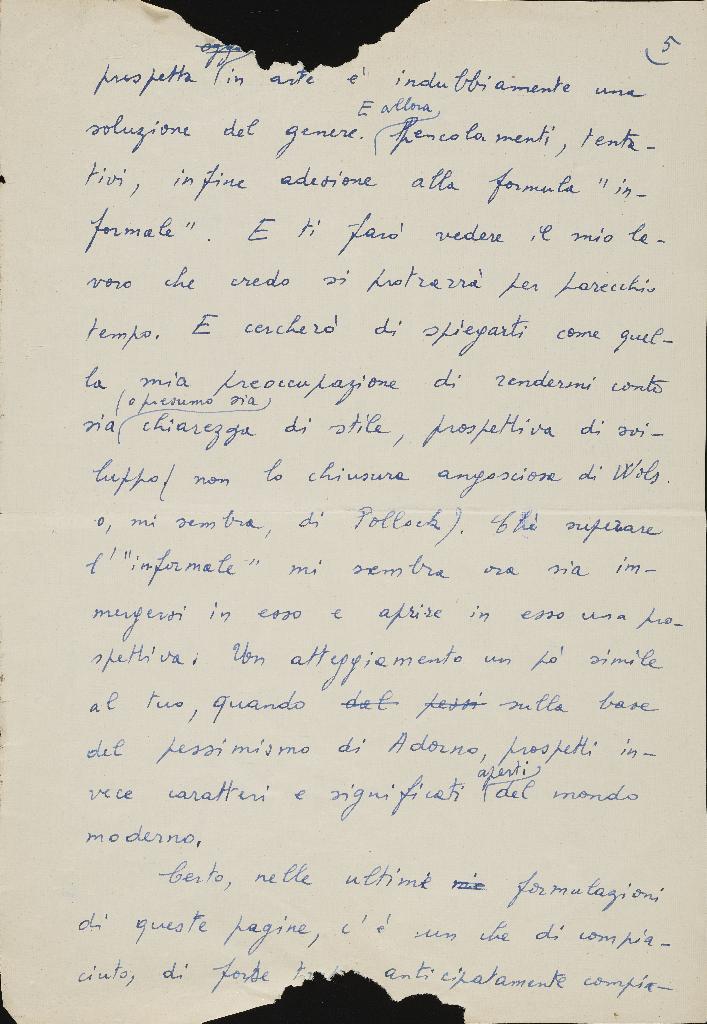 5
oggi
prospetta in arte e' indubbiamente una
E allora
soluzione del genere. Pencolamenti, tenta-
tivi, infine adesione alla formula "in-
formale". E ti farò vedere il mio la-
voro che credo si protrarrà per parecchio
tempo. E cercherò di spiegarti come quel-
la mia preoccupazione di rendermi conto
(o presumo sia)
sia chiarezza di stile, prospettiva di svi-
luppo (non la chiusura angosciosa di Wols
o, mi sembra, di Pollock). Chè superare
l'"informale" mi sembra ora sia im-
mergersi in esso e aprire in esso una pro-
spettiva. Un atteggiamento un pò simile
al tuo, quando dal pessi sulla base
del pessimismo di Adorno, prospetti in-
aperti
vece caratteri e significati del mondo
moderno.
Certo, nelle ultime formulazioni
di queste pagine, c'è un che di compia-
ciuto, di forse anticipatamente compia-